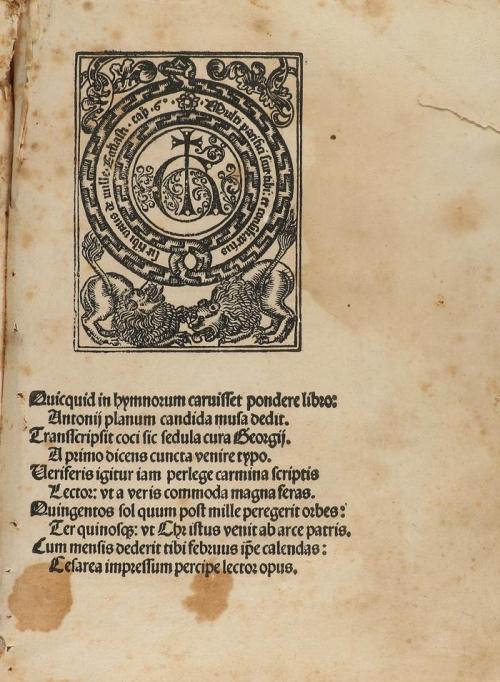 Multi pacifici sint tibi: et consiliarius
sit tibi unus de mille. Ecclasti. cap. 6º.
Quicquid in hymnorum caruisset pondere libro:
Antonij planum candida musa dedit.
Transscripsit coci sic sedula cura Georgij.
A primo dicens cuncta venire typo.
Veriferis igitur iam perlege carmina scriptis
Lector: vt a veris commoda magna feras.
Quingentos sol quum post mille peregerit orbes:
Ter quinosqꝫ: vt Christus venit ab arce patris.
Cum mensis dederit tibi februus ip̄e calendas:
Cesarea impressum percipe lector opus.